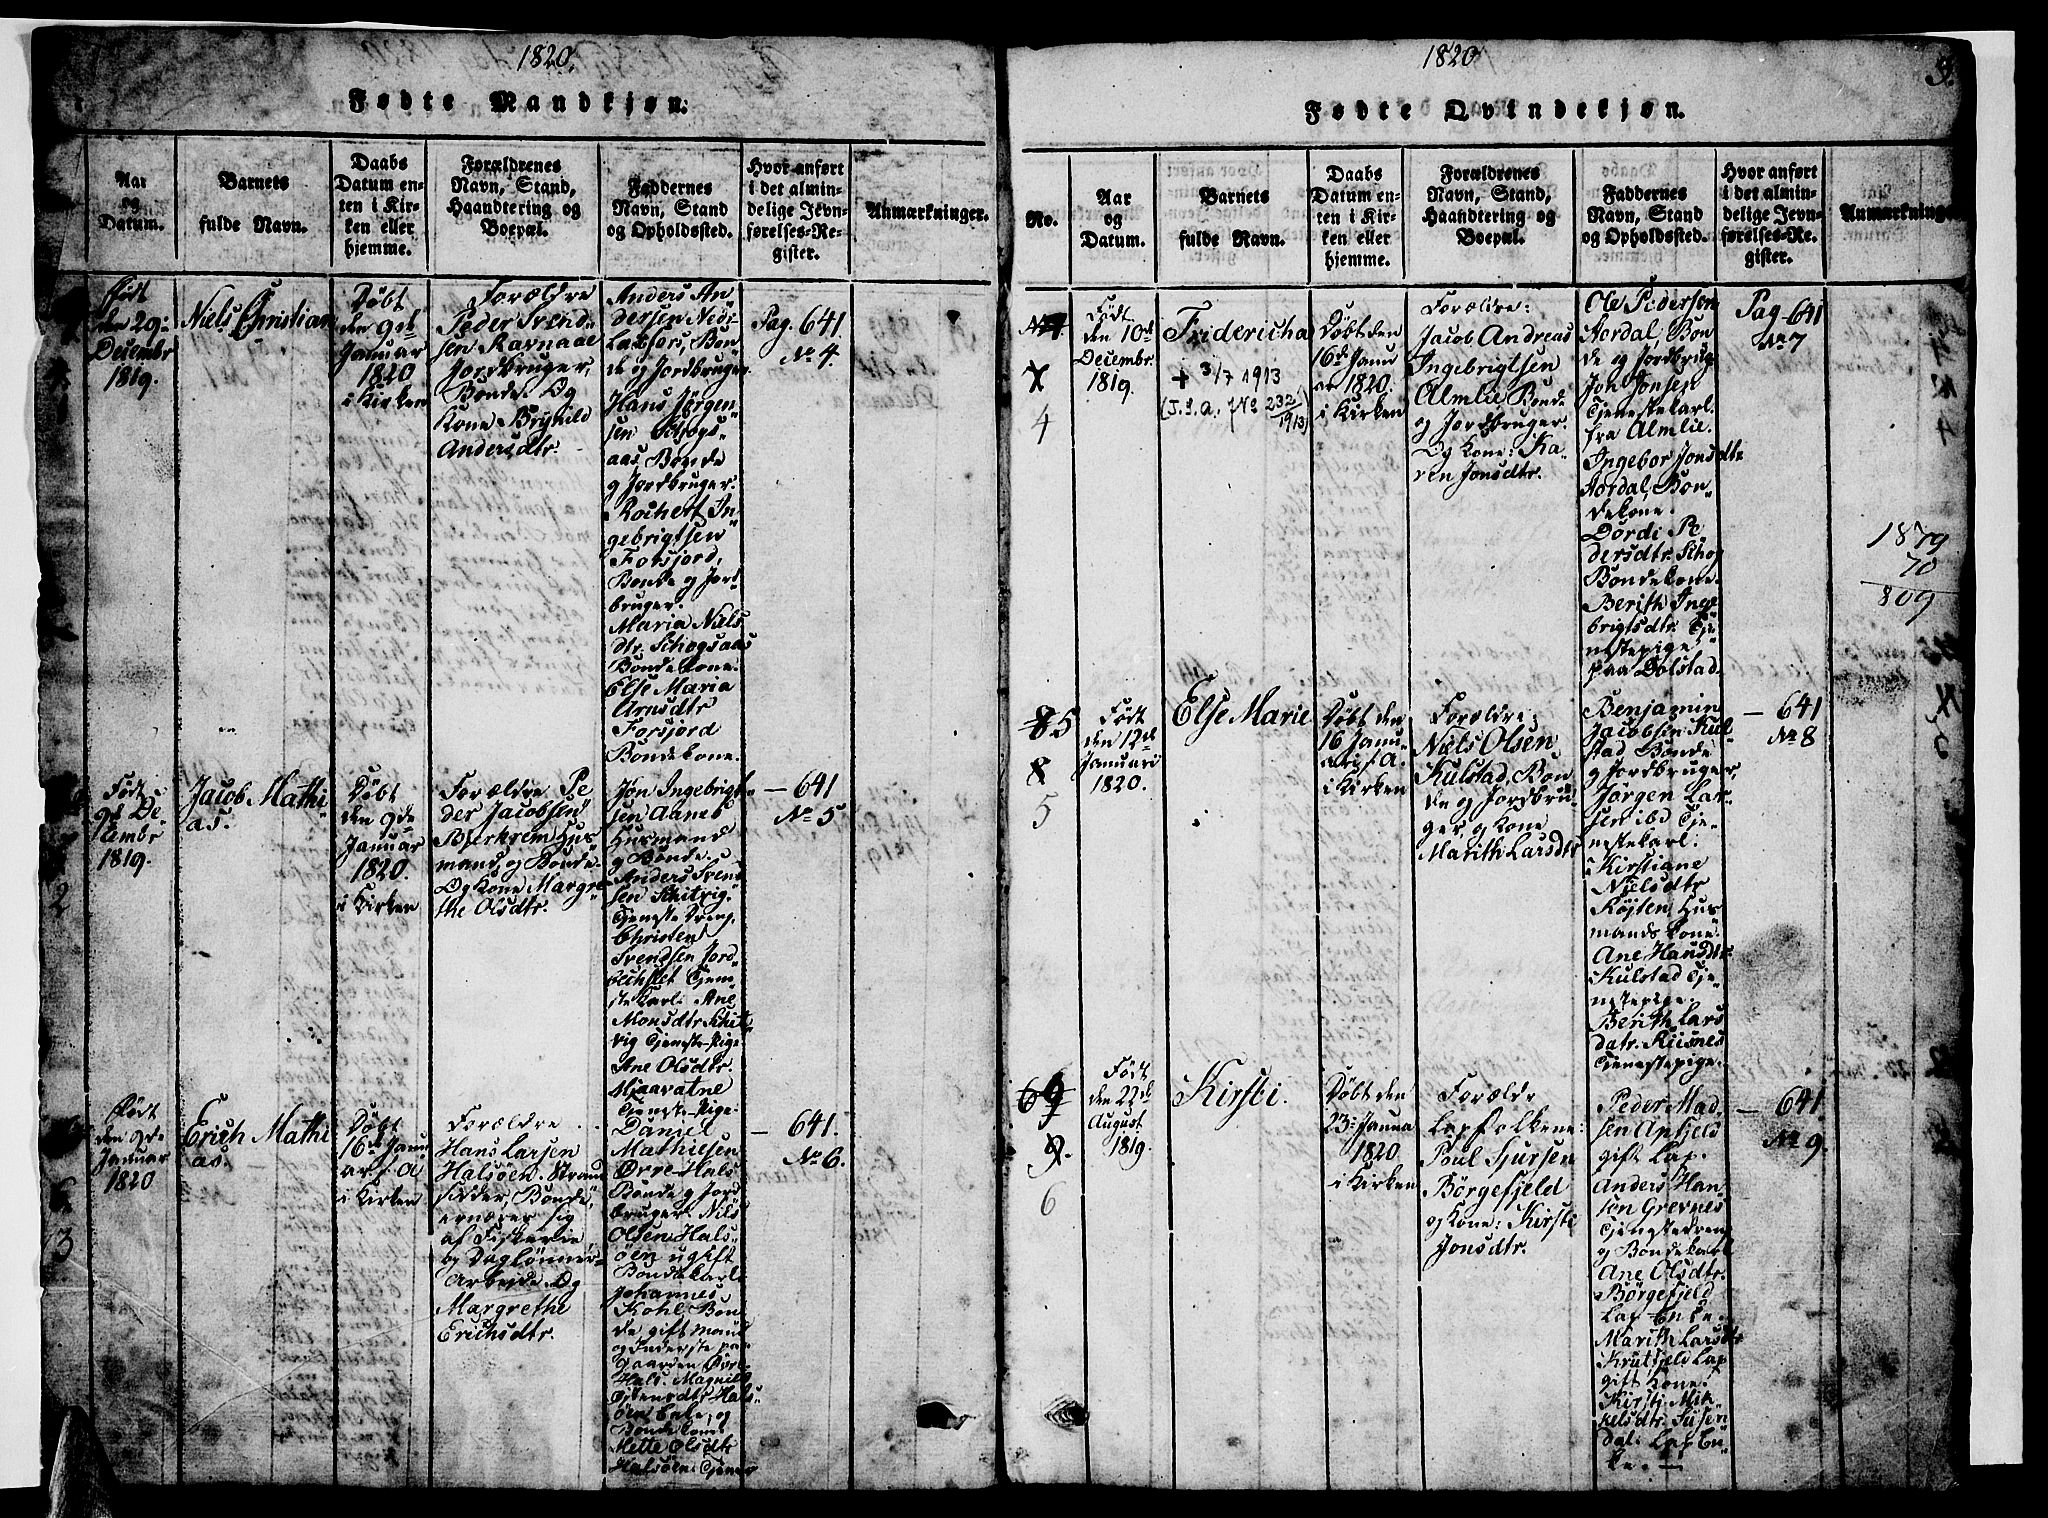 1820.
Fødte Mandkjøn.
Aar
og
Datum.
Barnets
fulde Navn.
Daabs
Datum en-
ten i Kir-
ken eller
hjemme.
Forældrenes
Navn, Stand,
Haandtering og
Boepæl.
Faddernes
Navn, Stand
og Opholdssted.
Hvor anført
i det almin-
delige Jevn-
førelses-Re-
gister.
Anmærkninger.
Født
den 29:
Decembr
1819.
Niels Christian
Døbt
den 9d
Januar
1820
i Kirken
Forældre
Peder Svend-
sen Ravnaae
Jordbruger,
Bonde. Og
Kone Brynild
Andersdtr.
Anders An
dersen Nedi-
Laxfors, Bon-
de og Jordbruger.
Hans Jørgen-
sen Schogs-
aas Bonde
og Jordbruger.
Rochert In-
gebrigtsen
Forsjord,
Bonde og Jord-
bruger.
Maria Niels
dtr. Schogsaas
Bondekone.
Else Maria
Arnsdtr
Forsjord
Bondekone.
Pag. 641
No 4.
Født
9d De-
cembr
1819.
Jacob Mathi
as.
Døbt
den 9de
Januar
1820.
i Kirken
Forældre Pe
der Jacobsen
Bjerkrem Hus-
mand, og Bonde.
Og Kone Margre
the Olsdtr.
Jon Ingebrigt-
sen Aanes
Husmand
og Bonde.
Anders Svend
sen Schitvig
Tjenestedreng.
Christen
Svendsen Jord-
Tjene-
stekarl. Ane
Monsdtr. Schit-
vig Tjenestepige
Ane Olsdtr.
Mjaavatne
Tjenestepige.
— 641
No 5
2
Født
den 9de
Januar
1820
Erich Mathi
as.
Døbt
16de Janu
ar s. A
i Kirken
Forældre
Hans Larsen
Halsöen. Strand
sidder, Bonde,
ernærer sig
af Fiskerie
og Daglønner-
Arbeide. Og
Margrethe
Erichsdtr.
Daniel
Mathisen
Ørre-Hals
Bonde og Jord
bruger. Nils
Olsen Hals-
öen ugift
Bondekarl
Johannes
Kohl, Bon
de gift mand
og Inderste paa
Gaarden Øvre
Hals. Magnild
Hals-
öen Enke, og
Bondekone
Mette Olsdtr
Halsöen. Tjenes
— 641.
No 6.
3
1820
3.
Fødte Qvindekjøn.
No.
Aar
og
Datum.
Barnets
fulde Navn.
Daabs
Datum en-
ten i Kir-
ken eller
hjemme.
Forældrenes
Navn, Stand,
Haandtering og
Boepæl.
Faddernes
Navn, Stand
og Opholdssted.
Hvor anført
i det almin-
delige Jevn-
førelses-Re-
gister.
Anmærkning
4
Født
den 10d
Decembr.
1819.
Fridericha
+ 3/7 1913
(J. S. a. No 232/1913)
Døbt den
16d Janu
ar 1820.
i Kirken
Forældre:
Jacob Andreas
Ingebrigtsen
Almlie Bonde
og Jordbruger.
Og Kone: Ka-
ren Jonsdtr.
Ole Pedersen
Aordal, Bon
de og Jordbrug.
Jon Jonsen
Tjenestekarl.
fra Almlie.
Ingebor Jonsdtr
Aordal, Bon-
dekone.
Dordi Pe-
dersdtr. Schog
Bondekone.
Berith Inge
brigtsdtr. Tje-
nestepige
paa Dolstad.
Pag. 641
No 7
1879
70
809
85
8
5
Født
den 12d
Januari
1820.
Else Marie
Døbt den
16 Janu-
ari s. A.
i Kirken
Forældre:
Niels Olsen
Kulstad, Bon
de og Jordbru-
ger, og Kone
Marith Larsdtr
Benjamin
Jacobsen Kul-
stad Bonde
og Jordbruger,
Jørgen Lar-
sen ibd Tje-
nestekarl.
Kirstiane
Nielsdtr
Røjten, Hus
mandskone.
Ane Hansdtr.
Kulstad Tje-
nestepige.
Berith Lars
datr. Riisnes
Tjenestepige.
— 641
No 8
69
9.
6
Født
den 22d
August
1819.
Kirsti.
Døbt den
23- Janua
1820
i Kirken
Forældre
Lapfolkene:
Poul Sjursen
Börgefjeld
og Kone: Kirsti
Jonsdtr.
Peder Mad
sen Apfjeld
gift Lap.
Anders Han-
sen Grevnes
Tjenestedreng
og Bondekarl
Ane Olsdtr.
Börgefjeld
Lap Enke.
Marith Larsdtr
Krutfjeld Lap
gift Kone.
Kirsti Mik-
kelsdtr. Susen
dal. Lap En-
ke. —
— 641.
No 9.